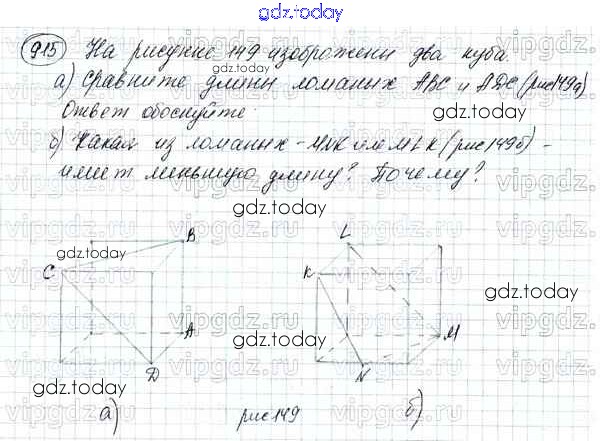 gdz.today
915 На рисунке 149 изображены два куба.
gdz.today
а) Сравните длины ломаных ABC и ADC (рис149а)
Ответ обоснуйте.
б) Какая из ломаных - MNK или MLK (рис149б) -
имеет меньшую длину? Почему?
gdz.today
gdz.today
gdz.today
gdz.today
gdz.today
gdz.today
C B A D
L K M N
а) рис149 б)
vipgdz.ru